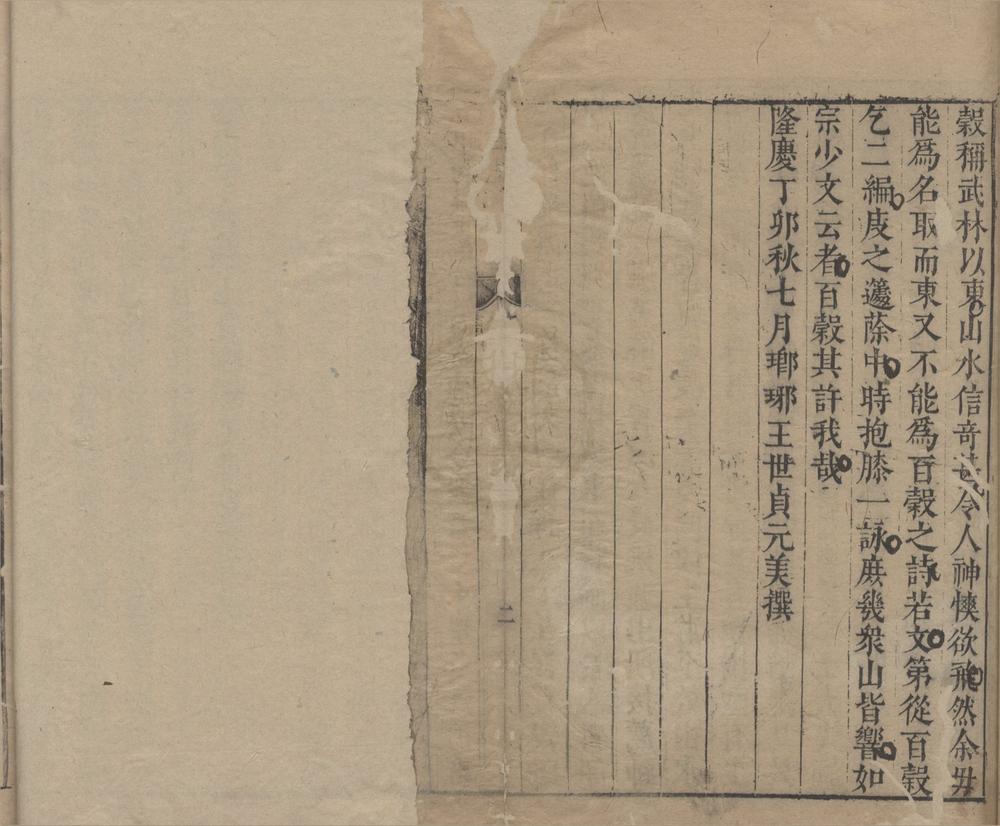 穀稱武林以東山水信奇甚令人神愯欲飛然余毋
能爲名取而東又不能爲百穀之詩若文第從百穀
乞二編庋之籧蒢中時抱膝一詠庶幾衆山皆響如
宗少文云者百穀其許我哉
隆慶丁卯秋七月瑯琊王世貞元美撰
二